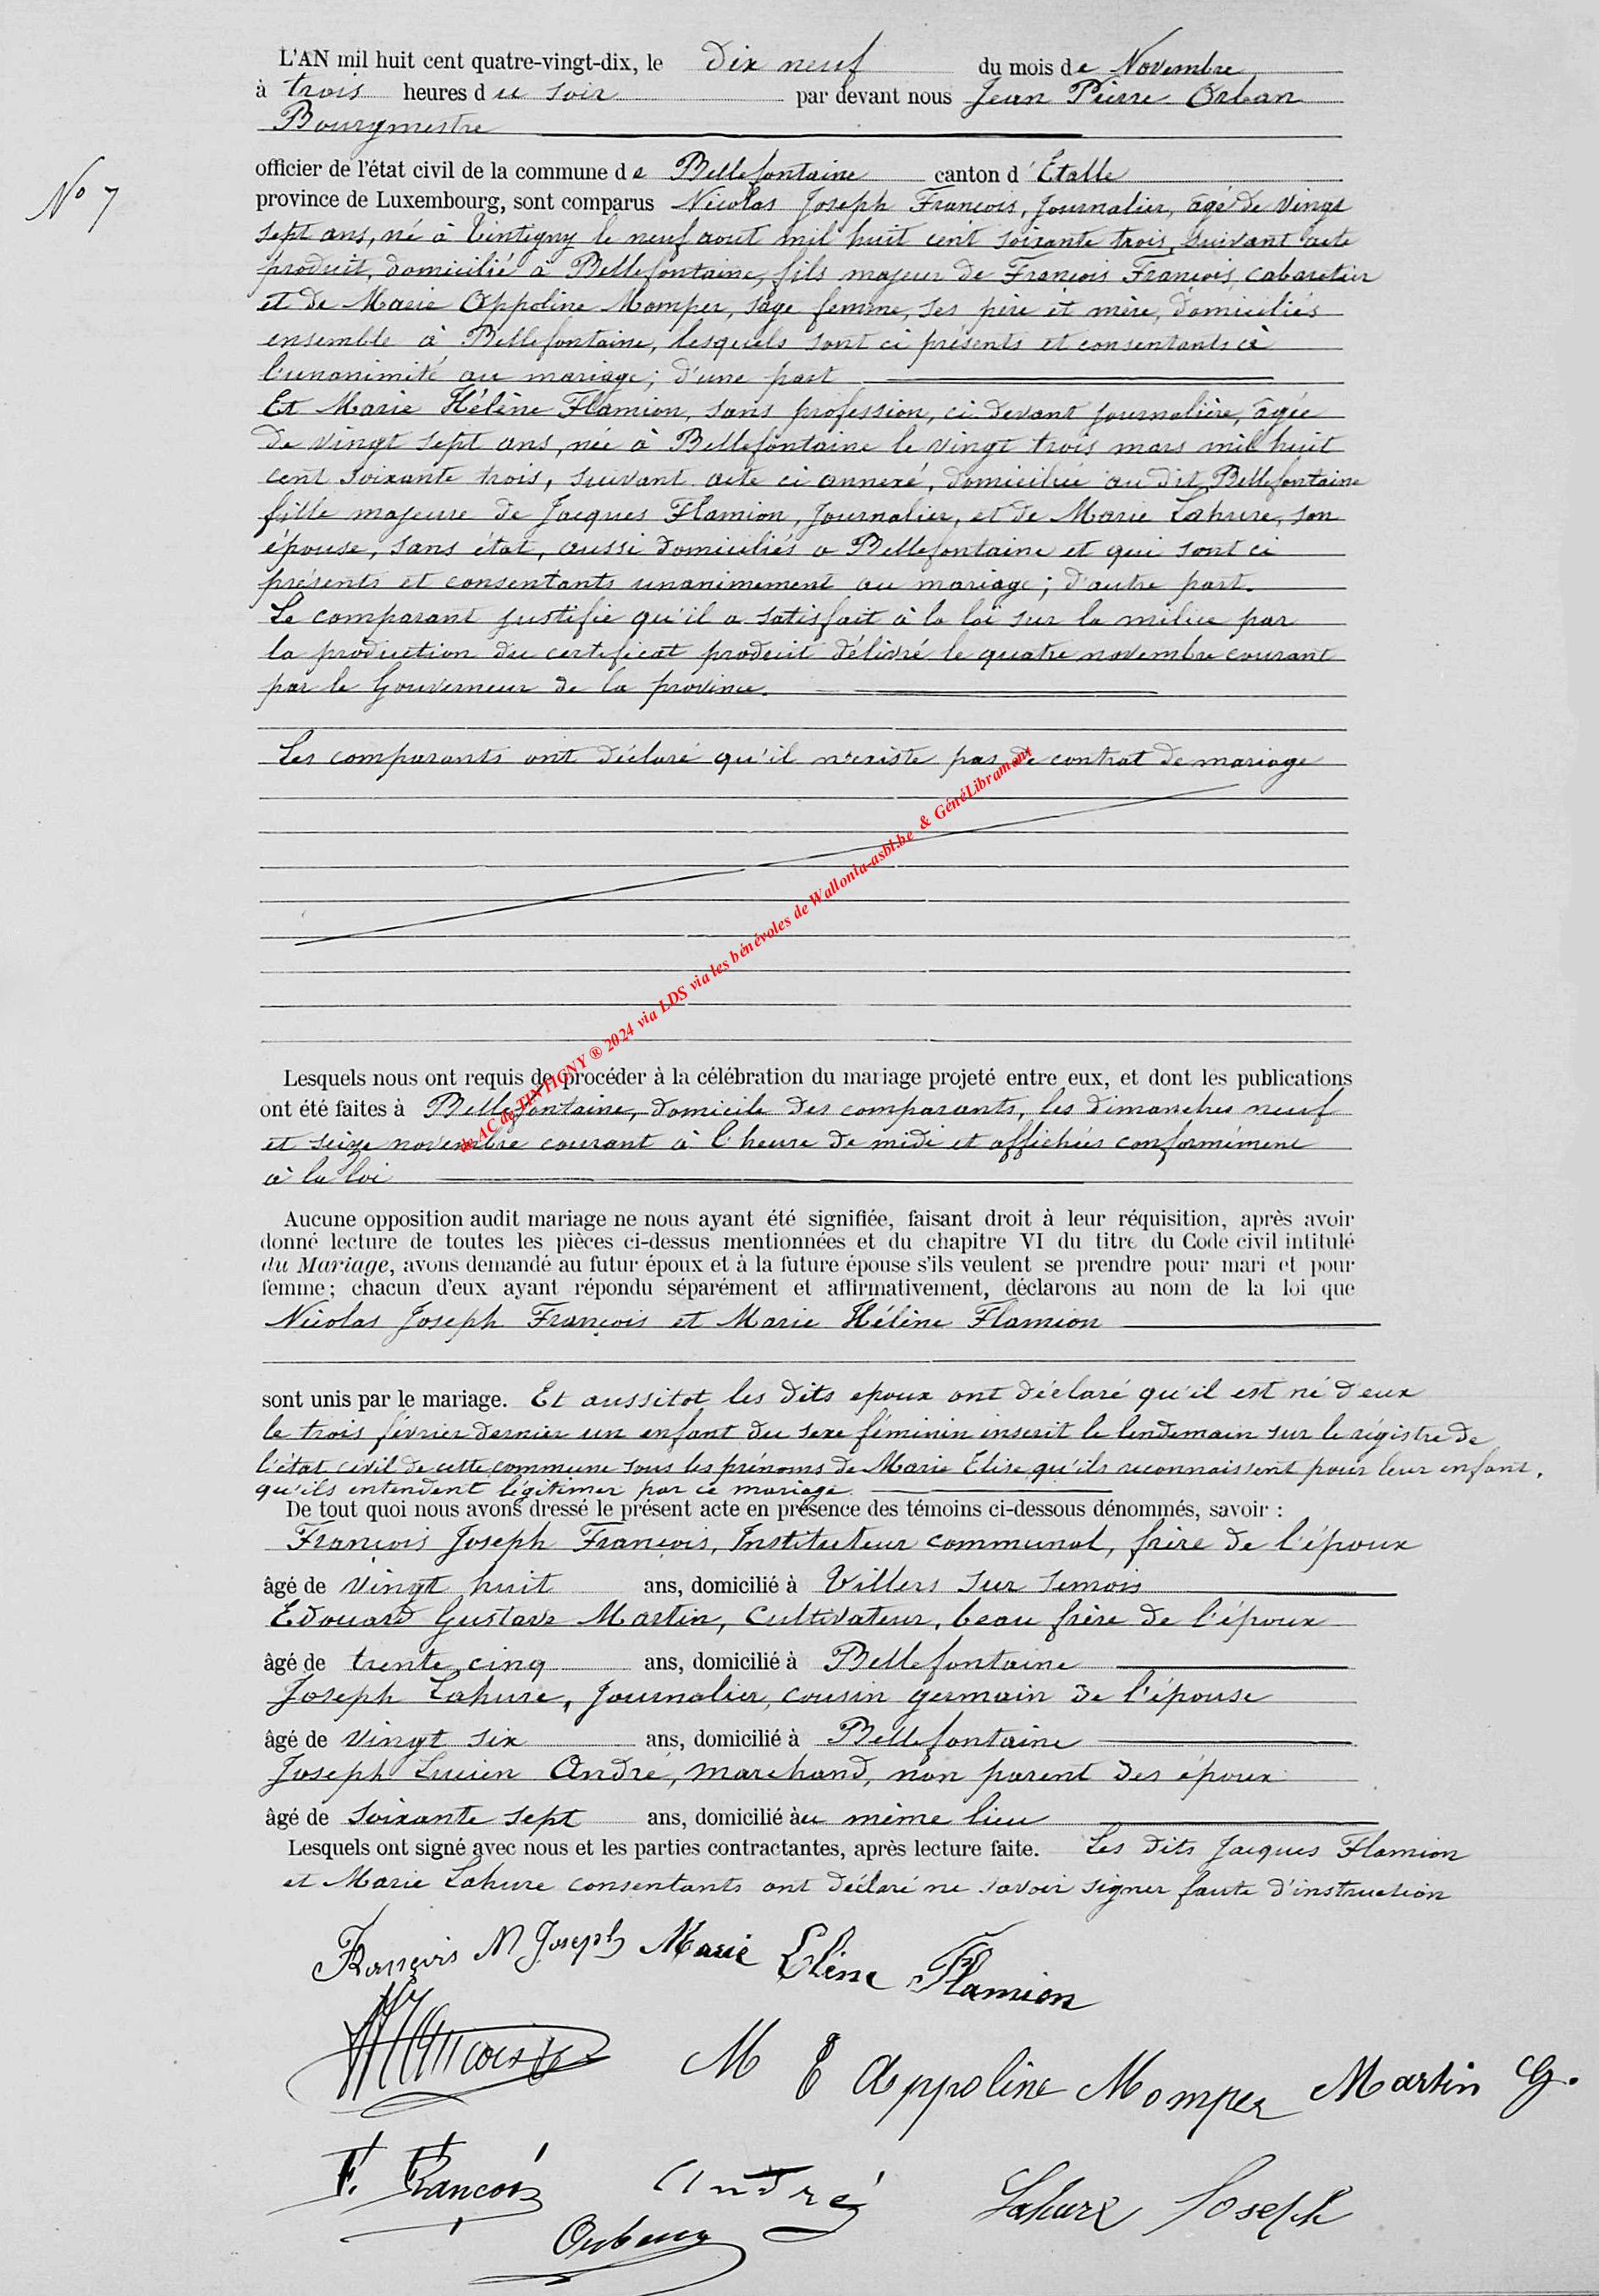 L'AN mil huit cent quatre-vingt-dix, le Dix neuf du mois de Novembre
à trois heures du soir par devant nous Jean Pierre Orban
Bourgmestre
officier de l'état civil de la commune de Bellefontaine canton d'Etalle
N° 7
province de Luxembourg, sont comparus Nicolas Joseph François, Journalier, âgé de vingt
sept ans, né à Tintigny le neuf aout mil huit cent soixante trois, suivant acte
produit, domicilié à Bellefontaine, fils majeur de François François, cabaretier
et de Marie Appoline Momper, sage femme, ses père et mère, domiciliés
ensemble à Bellefontaine, lesquels sont ci présents et consentants à
l'unanimité au mariage; d'une part
Et Marie Hélène Flamion, sans profession, ci-devant journalière, âgée
de vingt sept ans, née à Bellefontaine le vingt trois mars mil huit
cent soixante trois, suivant acte ci annexé, domiciliée au dit Bellefontaine
fille majeure de Jacques Flamion, Journalier, et de Marie Lahure, son
épouse, sans état, aussi domiciliés a Bellefontaine et qui sont ci
présents et consentants unanimement au mariage; d'autre part.
Le comparant justifie qu'il a satisfait à la loi sur la milice par
la production du certificat produit délivré le quatre novembre courant
par le Gouverneur de la province.
Les comparants ont déclaré qu'il n'existe pas de contrat de mariage
de AC de TINTIGNY ® 2024 via LDS via les bénévoles de Wallonia-asbl.be & GénéLibramont
Lesquels nous ont requis de procéder à la célébration du mariage projeté entre eux, et dont les publications
ont été faites à Bellefontaine, domicile des comparants, les dimanches neuf
et seize novembre courant à l'heure de midi et affichées conformément
à la loi
Aucune opposition audit mariage ne nous ayant été signifiée, faisant droit à leur réquisition, après avoir
donné lecture de toutes les pièces ci-dessus mentionnées et du chapitre VI du titre du Code civil intitulé
du Mariage, avons demandé au futur époux et à la future épouse s'ils veulent se prendre pour mari et pour
femme; chacun d'eux ayant répondu séparément et affirmativement, déclarons au nom de la loi que
Nicolas Joseph François et Marie Hélène Flamion
sont unis par le mariage. Et aussitot les dits epoux ont déclaré qu'il est né d'eux
le trois février dernier un enfant du sexe féminin inscrit le lendemain sur le régistre de
l'état civil de cette commune sous les prénoms de Marie Elise qu'ils reconnaissent pour leur enfant,
qu'ils entendent légitimer par ce mariage.
De tout quoi nous avons dressé le présent acte en présence des témoins ci-dessous dénommés, savoir :
François Joseph François, Instituteur communal, frère de l'époux
âgé de vingt huit ans, domicilié à Villers sur Semois
Edouard Gustave Martin, Cultivateur, beau frère de l'époux
âgé de trente cinq ans, domicilié à Bellefontaine
Joseph Lahure, Journalier, cousin germain de l'épouse
âgé de vingt six ans, domicilié à Bellefontaine
Joseph Lucien André, marchand, non parent des époux
âgé de soixante sept ans, domicilié àu même lieu
Lesquels ont signé avec nous et les parties contractantes, après lecture faite. Les dits Jacques Flamion
et Marie Lahure consentants ont déclaré ne savoir signer faute d'instruction
François N Joseph Marie Eléne Flamion
M E Appoline Momper Martin G.
F. François André Lahure Joseph
Orban